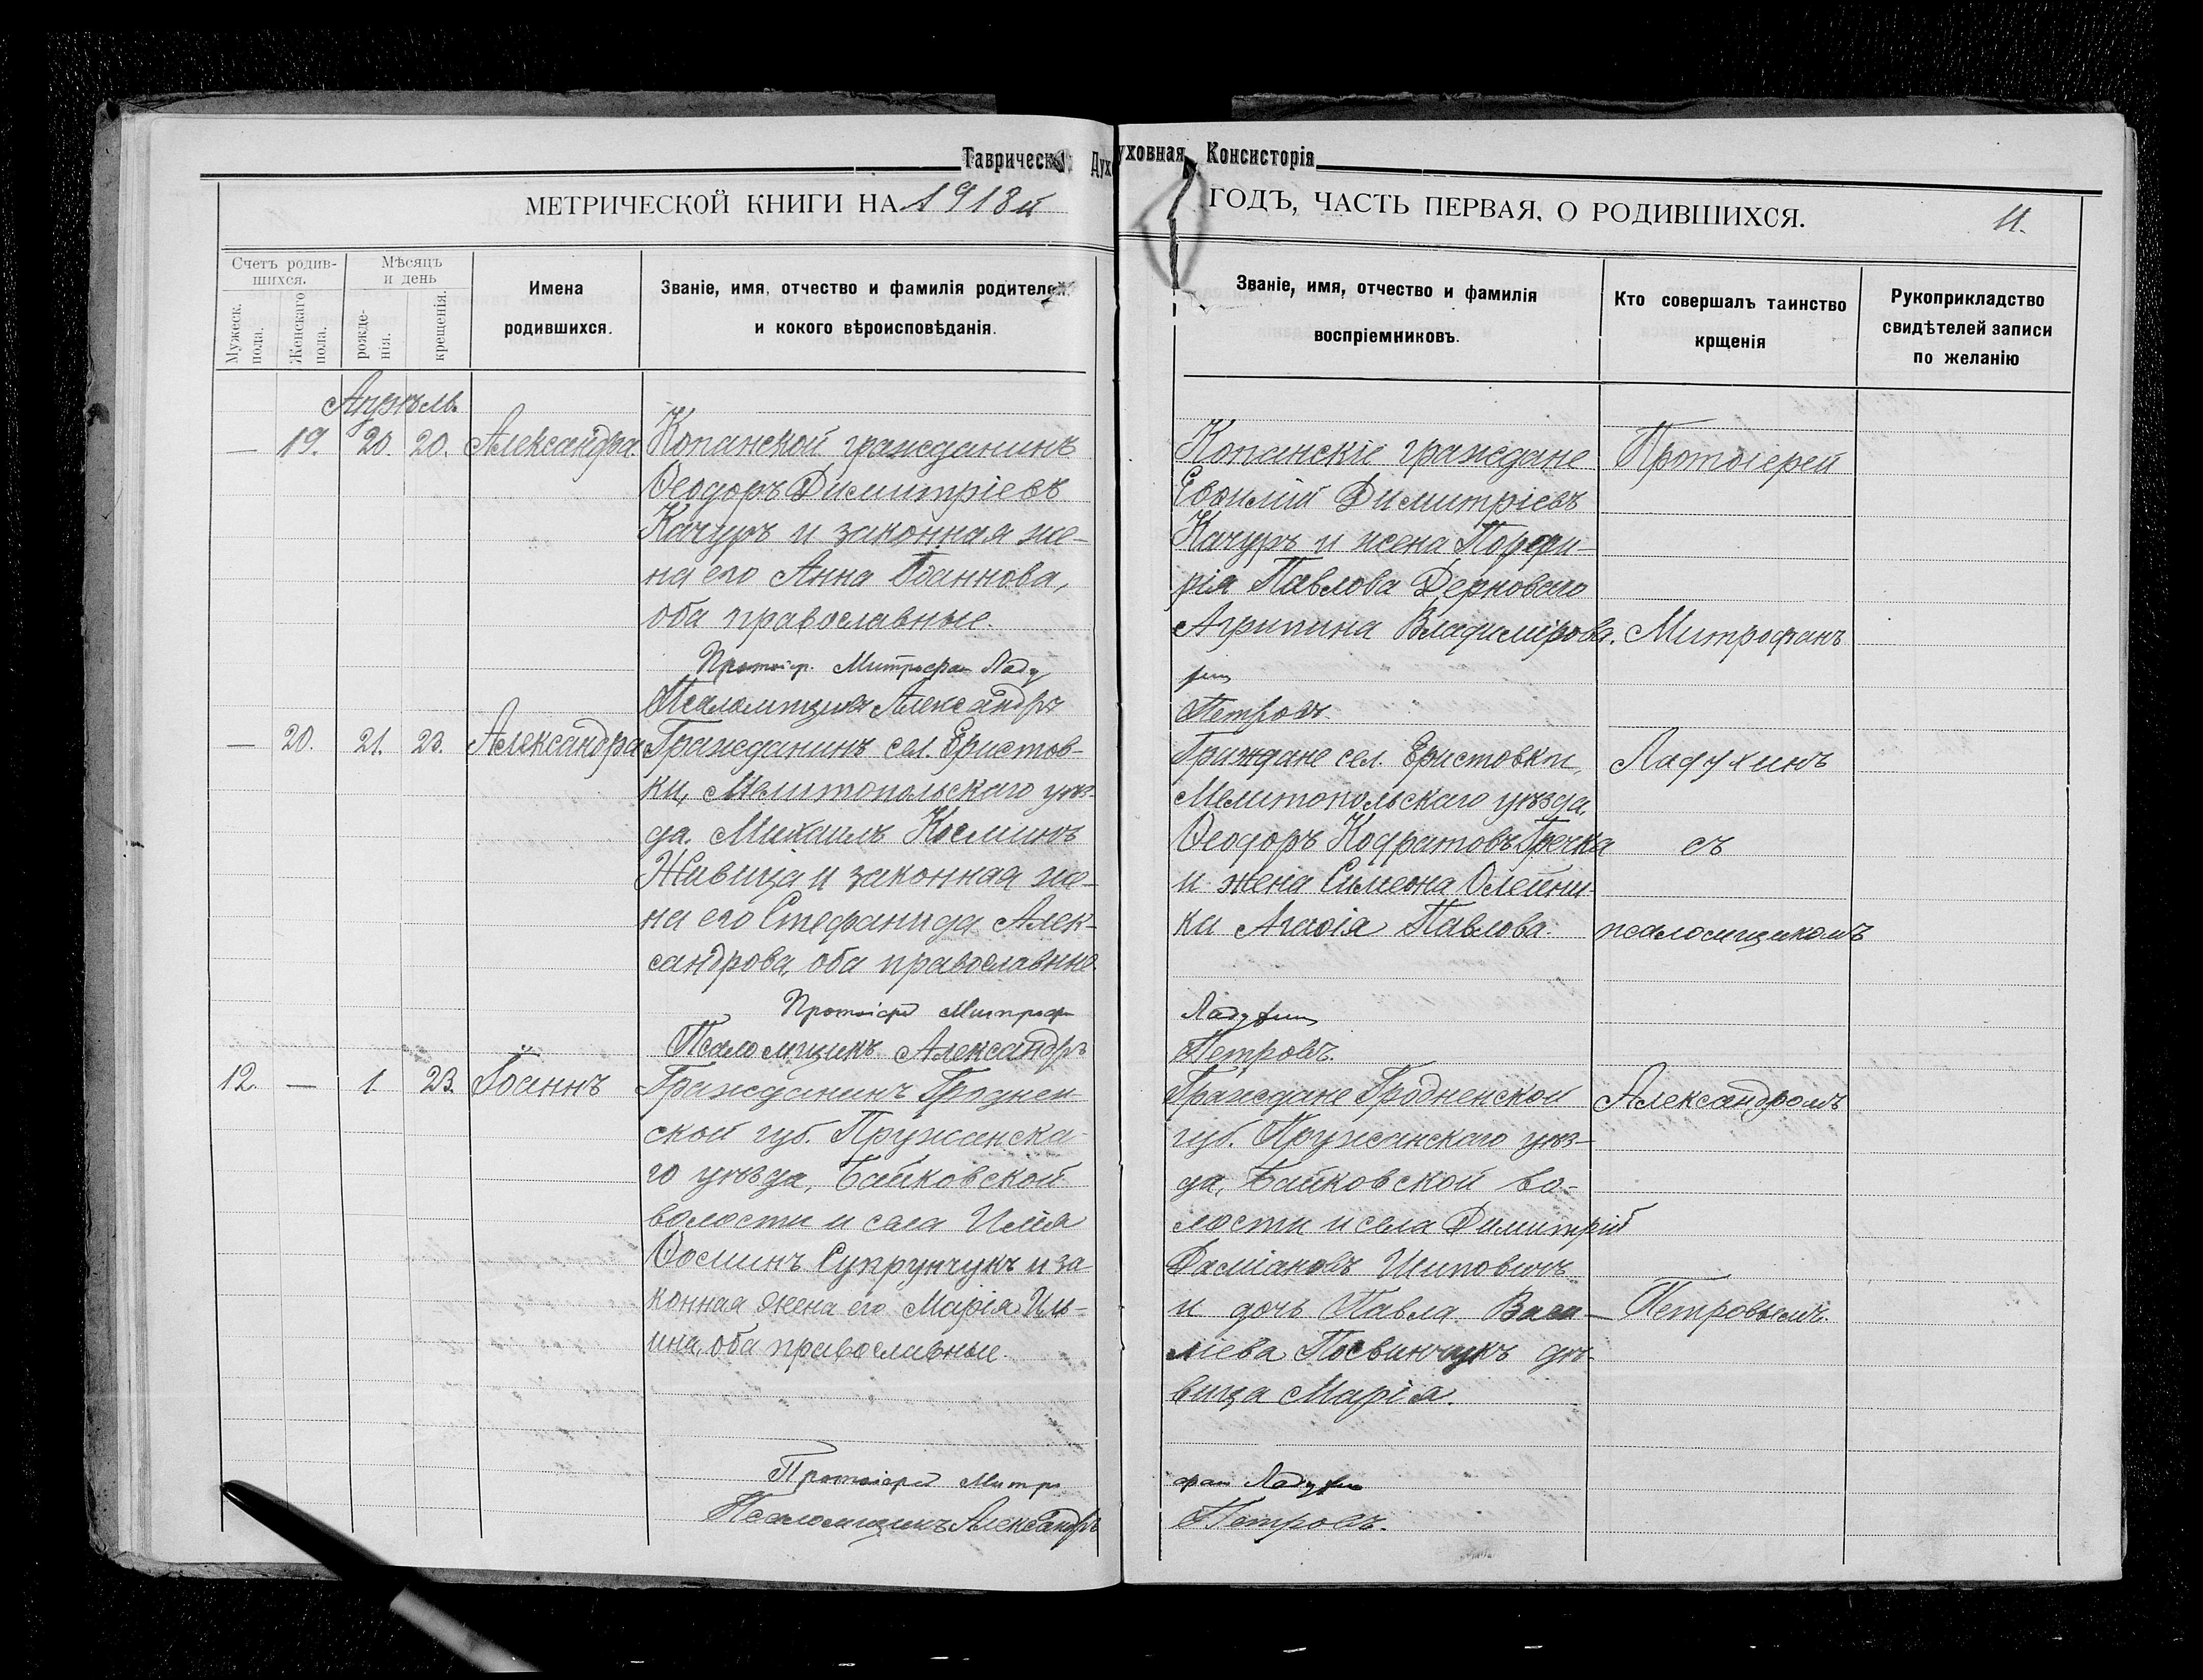 Таврическ Дух
уховная Консисторія
МЕТРИЧЕСКОЙ КНИГИ НА 1918й
ГОДЪ, ЧАСТЬ ПЕРВАЯ, О РОДИВШИХСЯ.
11.
Счетъ родив-
шихся.
Мужеск.
пола.
Женскаго
пола.
Мѣсяцъ
и день
рожде-
нія.
крещенія.
Имена
родившихся.
Званіе, имя, отчество и фамилія родителей
и кокого вѣроисповѣданія.
Званіе, имя, отчество и фамилія
воспріемниковъ.
Кто совершалъ таинство
крщенія
Рукоприкладство
свидѣтелей записи
по желанію
Апрѣль
— 19. 20. 20. Александра.
Копанской гражданинъ
Ѳеодоръ Димитріевъ
Качуръ и законная же-
на его Анна Іоаннова,
оба православные.
Протоіер. Митрофан Лад
Псаломщикъ Александръ
Копанскіе граждане
Евѳимій Димитріевъ
Качуръ и жена Порфи-
рія Павлова Дерковаго
Агрипина Владимірова.
Петровъ.
— 20. 21. 23. Александра
Гражданинъ сел. Еристов-
ки, Мелитопольскаго уѣз-
да. Михаилъ Косминъ
Живица и законная же-
на его Стефанида Алек-
сандрова, оба православные.
Протоіерей Митроф
Псаломщикъ Александръ
Граждане сел. Еристовки,
Мелитопольскаго уѣзда,
Ѳеодоръ Кодратовъ Гречка
и жена Симеона Олейни-
ки Агаѳія Павлова.
Ладухин
Петровъ.
12. — 1. 23. Іоаннъ
Гражданинъ Гроднен
ской губ. Пружанска
го уѣзда, Байковской
волости и села Илія
Ѳоминъ Супрунчукъ и за
конная жена его Марія Иль-
ина, оба православные.
Протоіерей Митро
Псаломщикъ Александръ
Граждане Гродненской
губ. Пружанскаго уѣз-
да, Байковской во-
лости и села Димитрій
Даміановъ
и дочь Павла Васи-
ліева дѣ-
вица Марія.
фан Ладухин
Петровъ.
Протоіерей
Митрофанъ
Ладухинъ
съ
псаломщикомъ
Александромъ
Петровымъ.